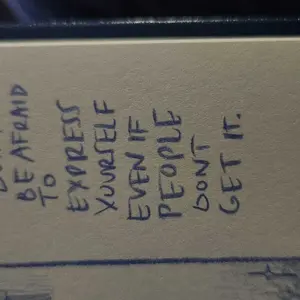 BE AFRAID
TO
EXPRESS
YOURSELF
EVEN IF
PEOPLE
DONT
GET IT.